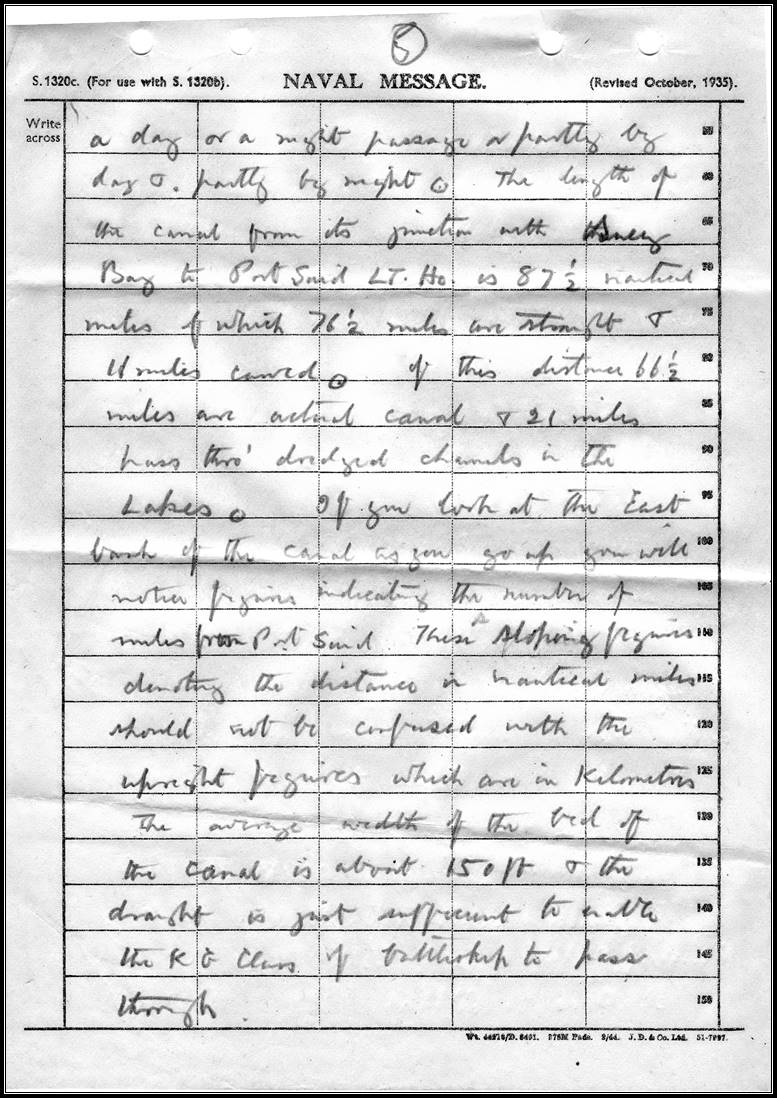 5
S.1320c. (For use with S. 1320b). NAVAL MESSAGE. (Revised October, 1935).
Write
across
a day or a night passage or partly by 55
day &. partly by night ⊙ The length of 60
the canal from its junction with 65
Bay to Port Said LT. Ho. is 87½ nautical 70
miles of which 76½ miles are straight & 75
11 miles curved ⊙ Of this distance 66½ 80
miles are actual canal & 21 miles 85
pass thro' dredged channels in the 90
Lakes ⊙ If you look at the East 95
bank of the canal as you go up you will 100
notice figures indicating the number of 105
miles from Port Said. These sloping figures 110
denoting the distance in nautical miles 115
should not be confused with the 120
upright figures which are in Kilometres 125
The average width of the bed of 130
the canal is about 150 ft & the 135
draught is just sufficient to enable 140
the K G Class of battleship to pass 145
through. 150
Wt. /D. 8401. 375M Pads. 2/44. J. D. & Co. Ltd. 51-7297.